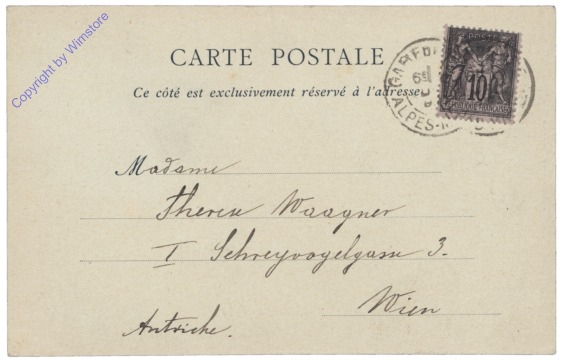 Copyright by Wimstore
CARTE POSTALE
Ce côté est exclusivement réservé à l'adresse
POSTE
10
REPUBLIQUE FRANÇAISE
GARE DE
6E
ALPES-M
Madame
Therese Waagner
I Schreyvogelgasse 3.
Wien
Autriche.